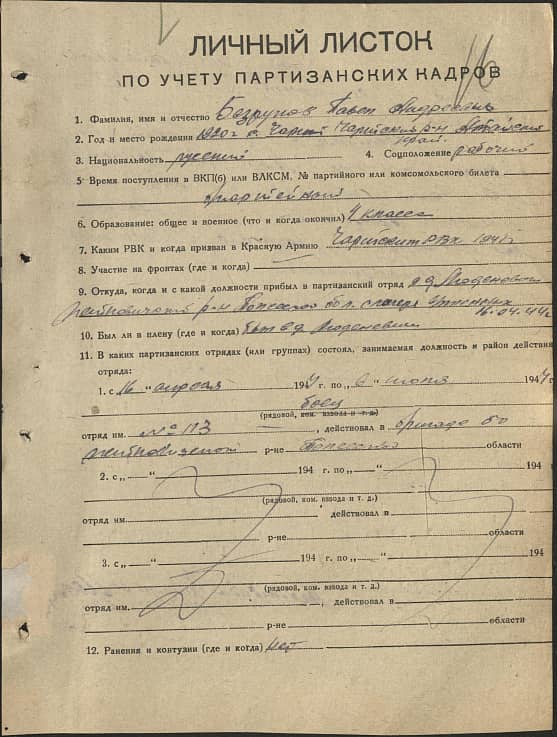 ЛИЧНЫЙ ЛИСТОК
ПО УЧЕТУ ПАРТИЗАНСКИХ КАДРОВ
1. Фамилия, имя и отчество Павел Андреевич
2. Год и место рождения 1920 г. Чарышский р-н Алтайский
край.
3. Национальность русский 4. Соцположение рабочий
5 Время поступления в ВКП(б) или ВЛКСМ, № партийного или комсомольского билета
б/партейный
6. Образование: общее и военное (что и когда окончил) 4 класса
7. Каким РВК и когда призван в Красную Армию РВК 1941
8. Участие на фронтах (где и когда) —
9. Откуда, когда и с какой должности прибыл в партизанский отряд
р-н Полесской обл. с лагеря
16.04.44г
10. Был ли в плену (где и когда) был в д.
11. В каких партизанских отрядах (или группах) состоял, занимаемая должность и район действий
отряда:
1. с „16 “ апреля 1944 г. по „6 “ июня 1944 г.
боец
(рядовой, ком. взвода и т. д.)
отряд им. № 113 , действовал в бригаде
р-не Полесской области
2. с „ “ 194 г. по „ “ 194
(рядовой, ком. взвода и т. д.)
отряд им. действовал в
р-не области
3. с „ “ 194 г. по „ “ 194
(рядовой, ком. взвода и т. д.)
отряд им. , действовал в
р-не области
12. Ранения и контузии (где и когда) нет